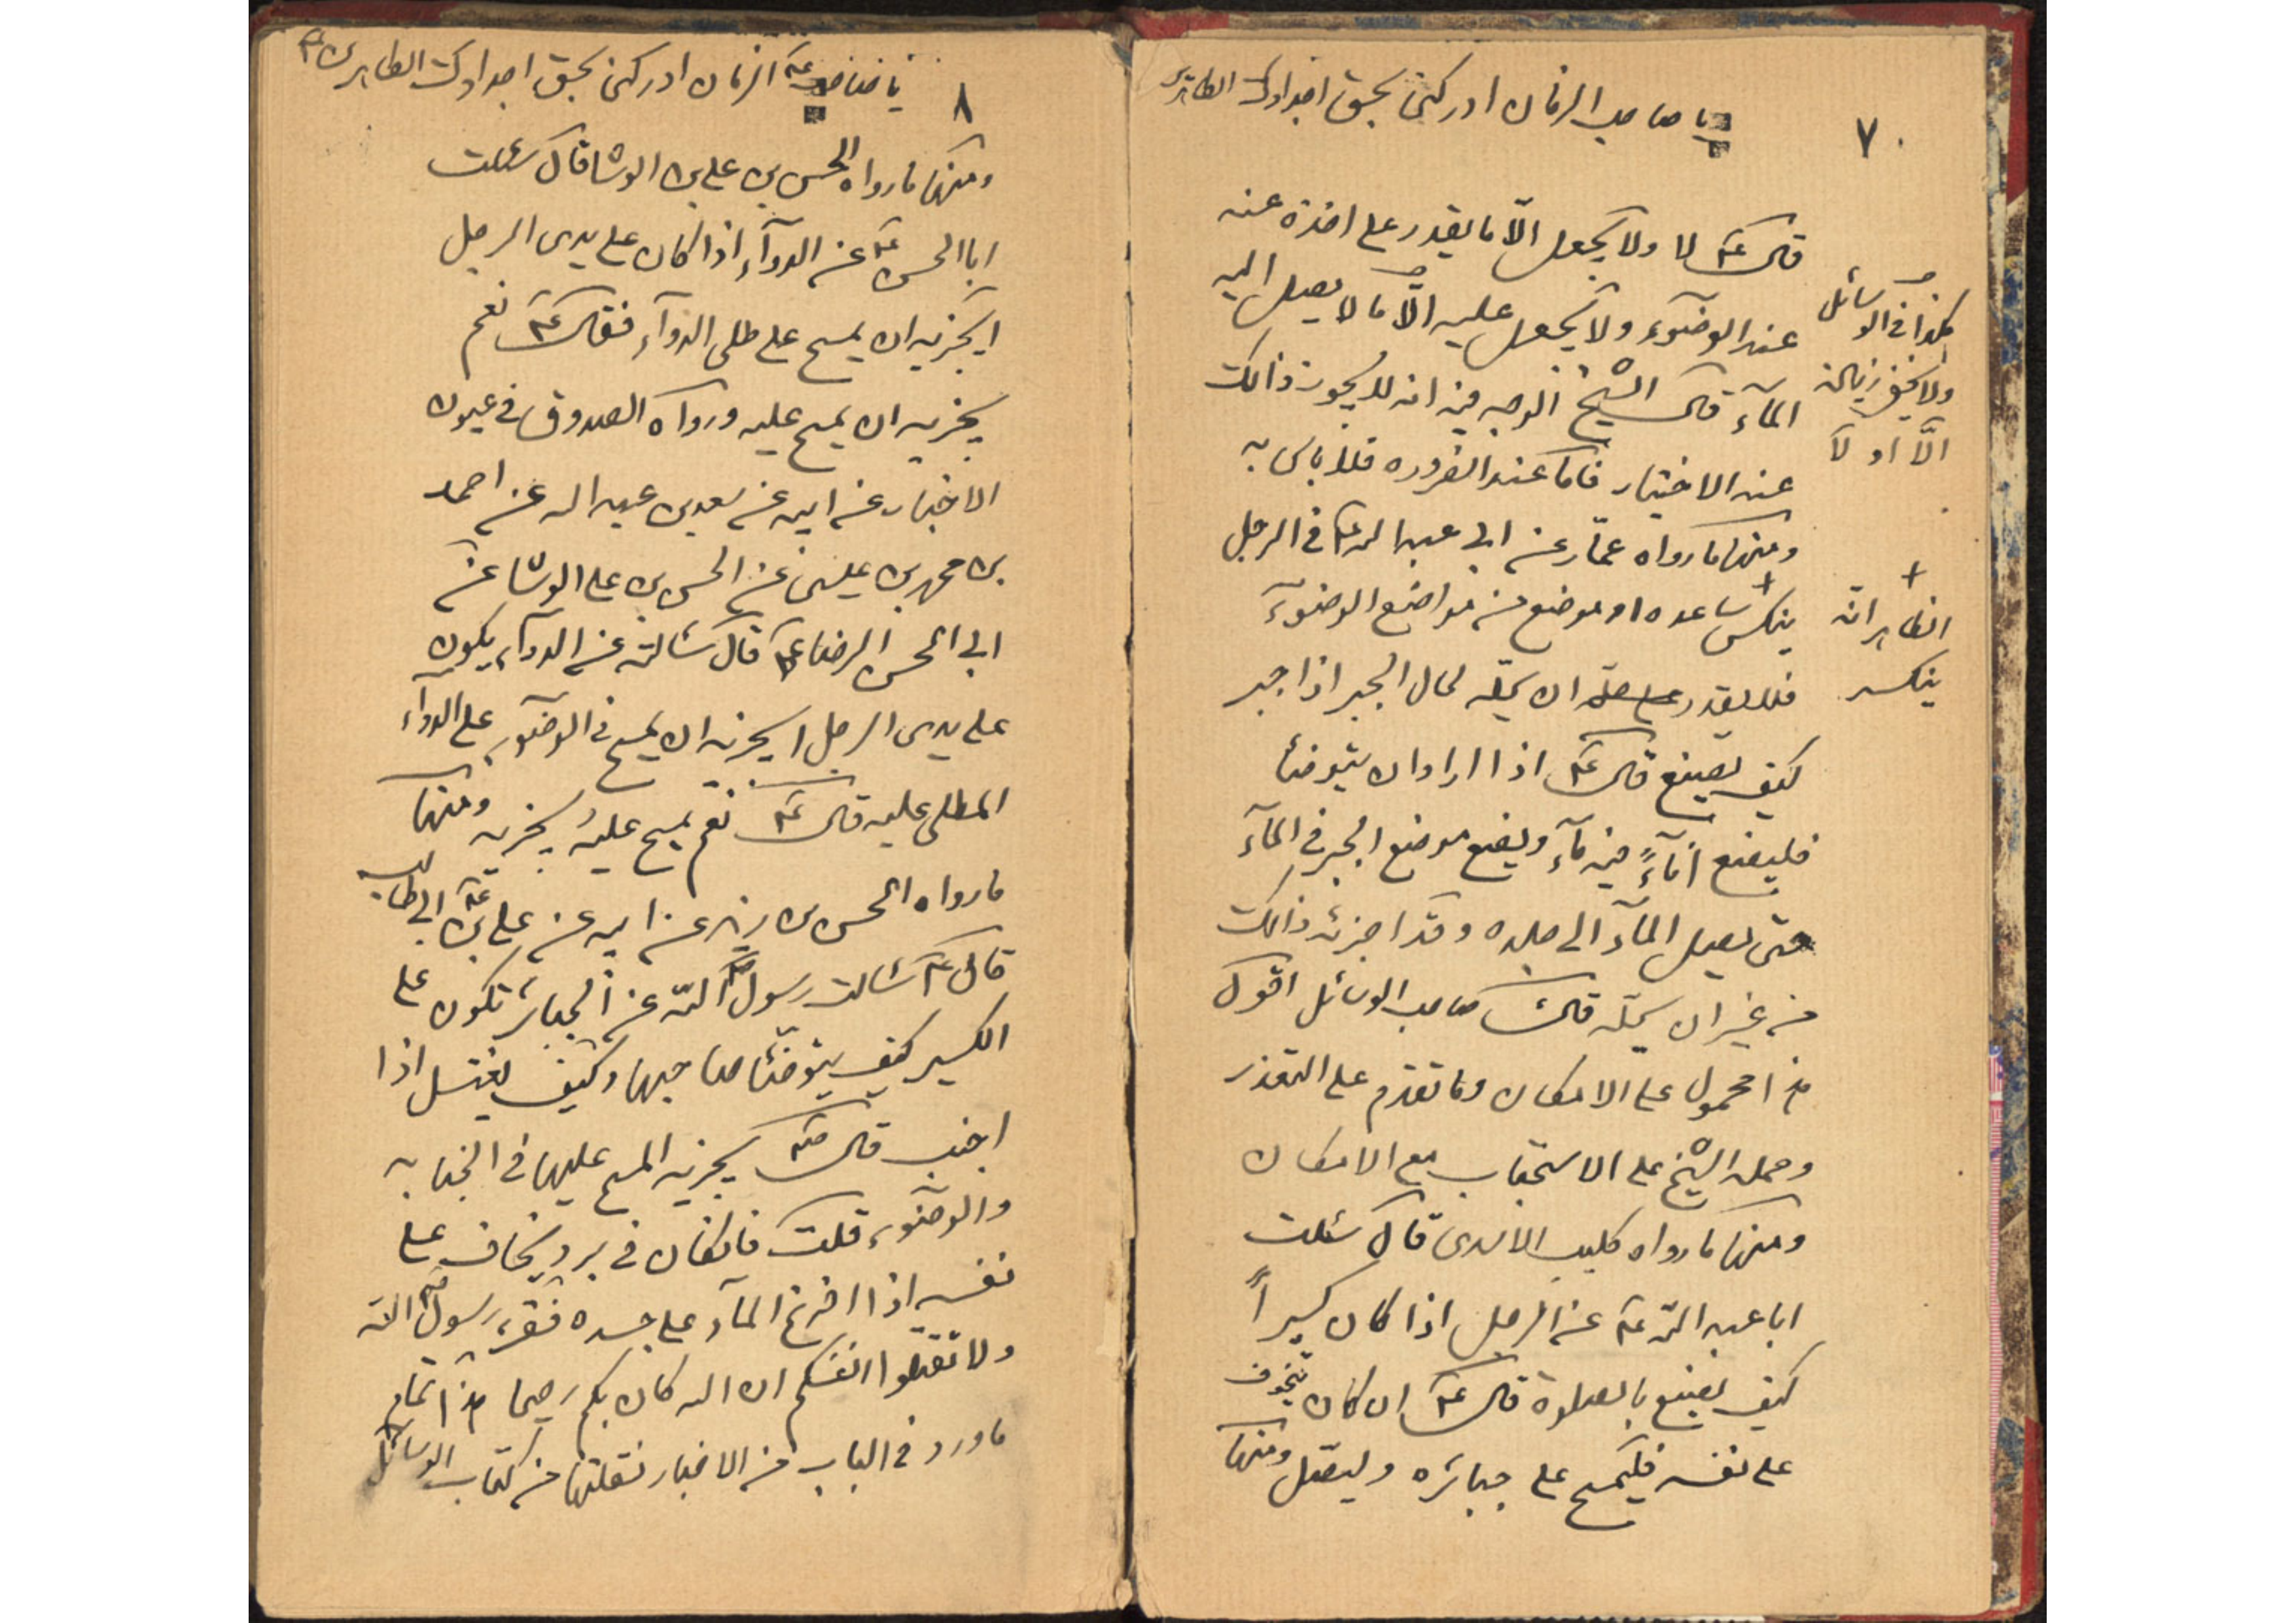 ٧
يا صاحب الزمان ادركنى بحق اجدادك الطاهرين
قال ع لا ولا يجعل الّا ما يقدر على اخذه عنه
عند الوضوء ولا يجعل عليه الّا ما لا يصل اليه
المآء قال الشيخ الوجه فيه انه لا يجوز ذالك
عند الاختيار فاما عند الضروره فلا باس به
ومنها ما رواه عمّار عن ابى عبد الله ع فى الرجل
ينكس ساعده او موضع من مواضع الوضوء
فلا يقدر ان يحلّه لحال الجبر اذا جبر
كيف يصنع قال ع اذا اراد ان يتوضا
فليضع انآءً فيه مآء ويضع موضع الجبر فى المآء
حتى يصل المآء الى جلده وقد اجزئه ذالك
من غير ان يحلّه قال صاحب الوسائل اقول
هذا محمول على الامكان وما تقدم على التعذر
وحمله الشيخ على الاستحباب مع الامكان
ومنها ما رواه كليب الاسدى قال سئلت
ابا عبد الله ع عن الرجل اذا كان كسيراً
كيف يصنع بالصلوة قال ع ان كان يتخوف
على نفسه فليمسح على جبائره وليصّل ومنها
كذا فى الوسائل
ولا يخفى زيادة
الّا او لا
الظاهر انه
ينكسر
٨
يا صاحب الزمان ادركنى بحق اجدادك الطاهرين
ومنها ما رواه الحسن بن على بن الوشا قال سئلت
ابا الحسن ع عن الدوآء اذا كان على يدى الرجل
ايجزيه ان يمسح على طلى الدوآء فقال ع نعم
يجزيه ان يمسح عليه ورواه الصدوق فى عيون
الاخبار عن ابيه عن سعد بن عبد الله عن احمد
بن محمد بن عيسى عن الحسن بن على الوشا عن
ابى الحسن الرضا ع قال سئالته عن الدوآء يكون
على يدى الرجل ايجزيه ان يمسح فى الوضوء على الدوآء
المطلى عليه قال ع نعم يمسح عليه يجزيه ومنها
ما رواه الحسن بن زيد عن ابيه عن على بن ابى طالب ع
قال ع سئالت رسول الله عن الجبائر تكون على
الكسير كيف يتوضئا صاحبها وكيف يغتسل اذا
اجنب قال ص يجزيه المسح عليها فى الجنابه
والوضوء قلت فان كان فى برد يخاف على
نفسه اذا افرغ المآء على جسده فقرء رسول الله
ولا تقتلوا انفسكم ان الله كان بكم رحيما هذا تمام
ما ورد فى الباب من الاخبار نقلتها من كتاب الوسائل